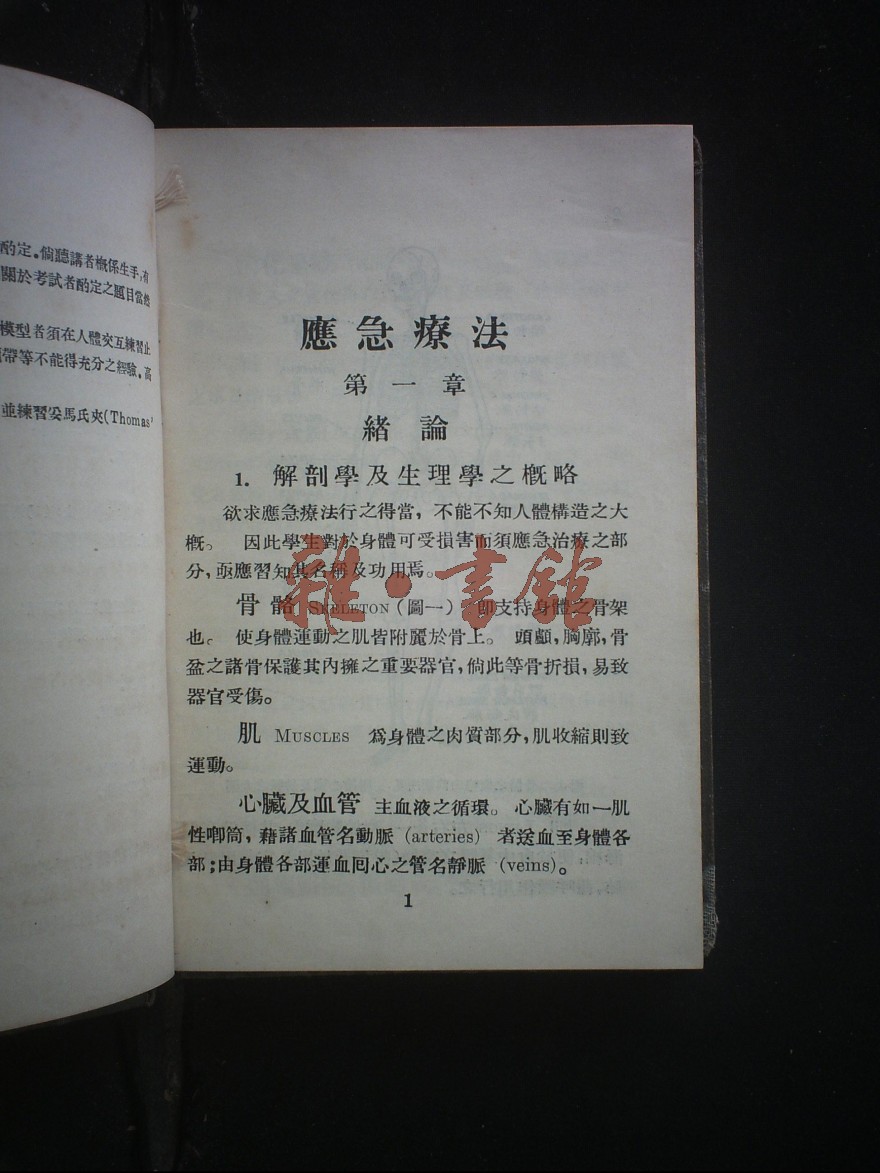 酌定。倘聽講者概係生手,有
關於考試者酌定之題目當然
模型者須在人體交互練習止
帶等不能得充分之經驗。高
並練習妥馬氏夾(Thomas'
應急療法
第一章
緒論
1. 解剖學及生理學之概略
欲求應急療法行之得當,不能不知人體構造之大
概。 因此學生對於身體可受損害而須應急治療之部
分,亟應習知其名稱及功用焉。
骨骼 SKELETON (圖一) 即支持身體之骨架
也。 使身體運動之肌皆附麗於骨上。 頭顱,胸廓,骨
盆之諸骨保護其內擁之重要器官,倘此等骨折損,易致
器官受傷。
肌 MUSCLES 爲身體之肉質部分,肌收縮則致
運動。
心臟及血管 主血液之循環。 心臟有如一肌
性唧筒,藉諸血管名動脈 (arteries) 者送血至身體各
部;由身體各部運血囘心之管名靜脈 (veins)。
1
雜·書館